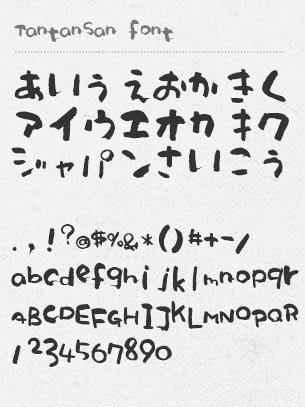 TanTanSan font
あいう えおか きく
アイウエオカ キク
ジャパンさいこう
.,!?@$%&*()#+-/
abcdefghijklmnopqr
ABCDEFGHIJKLMNOPQR
1234567890